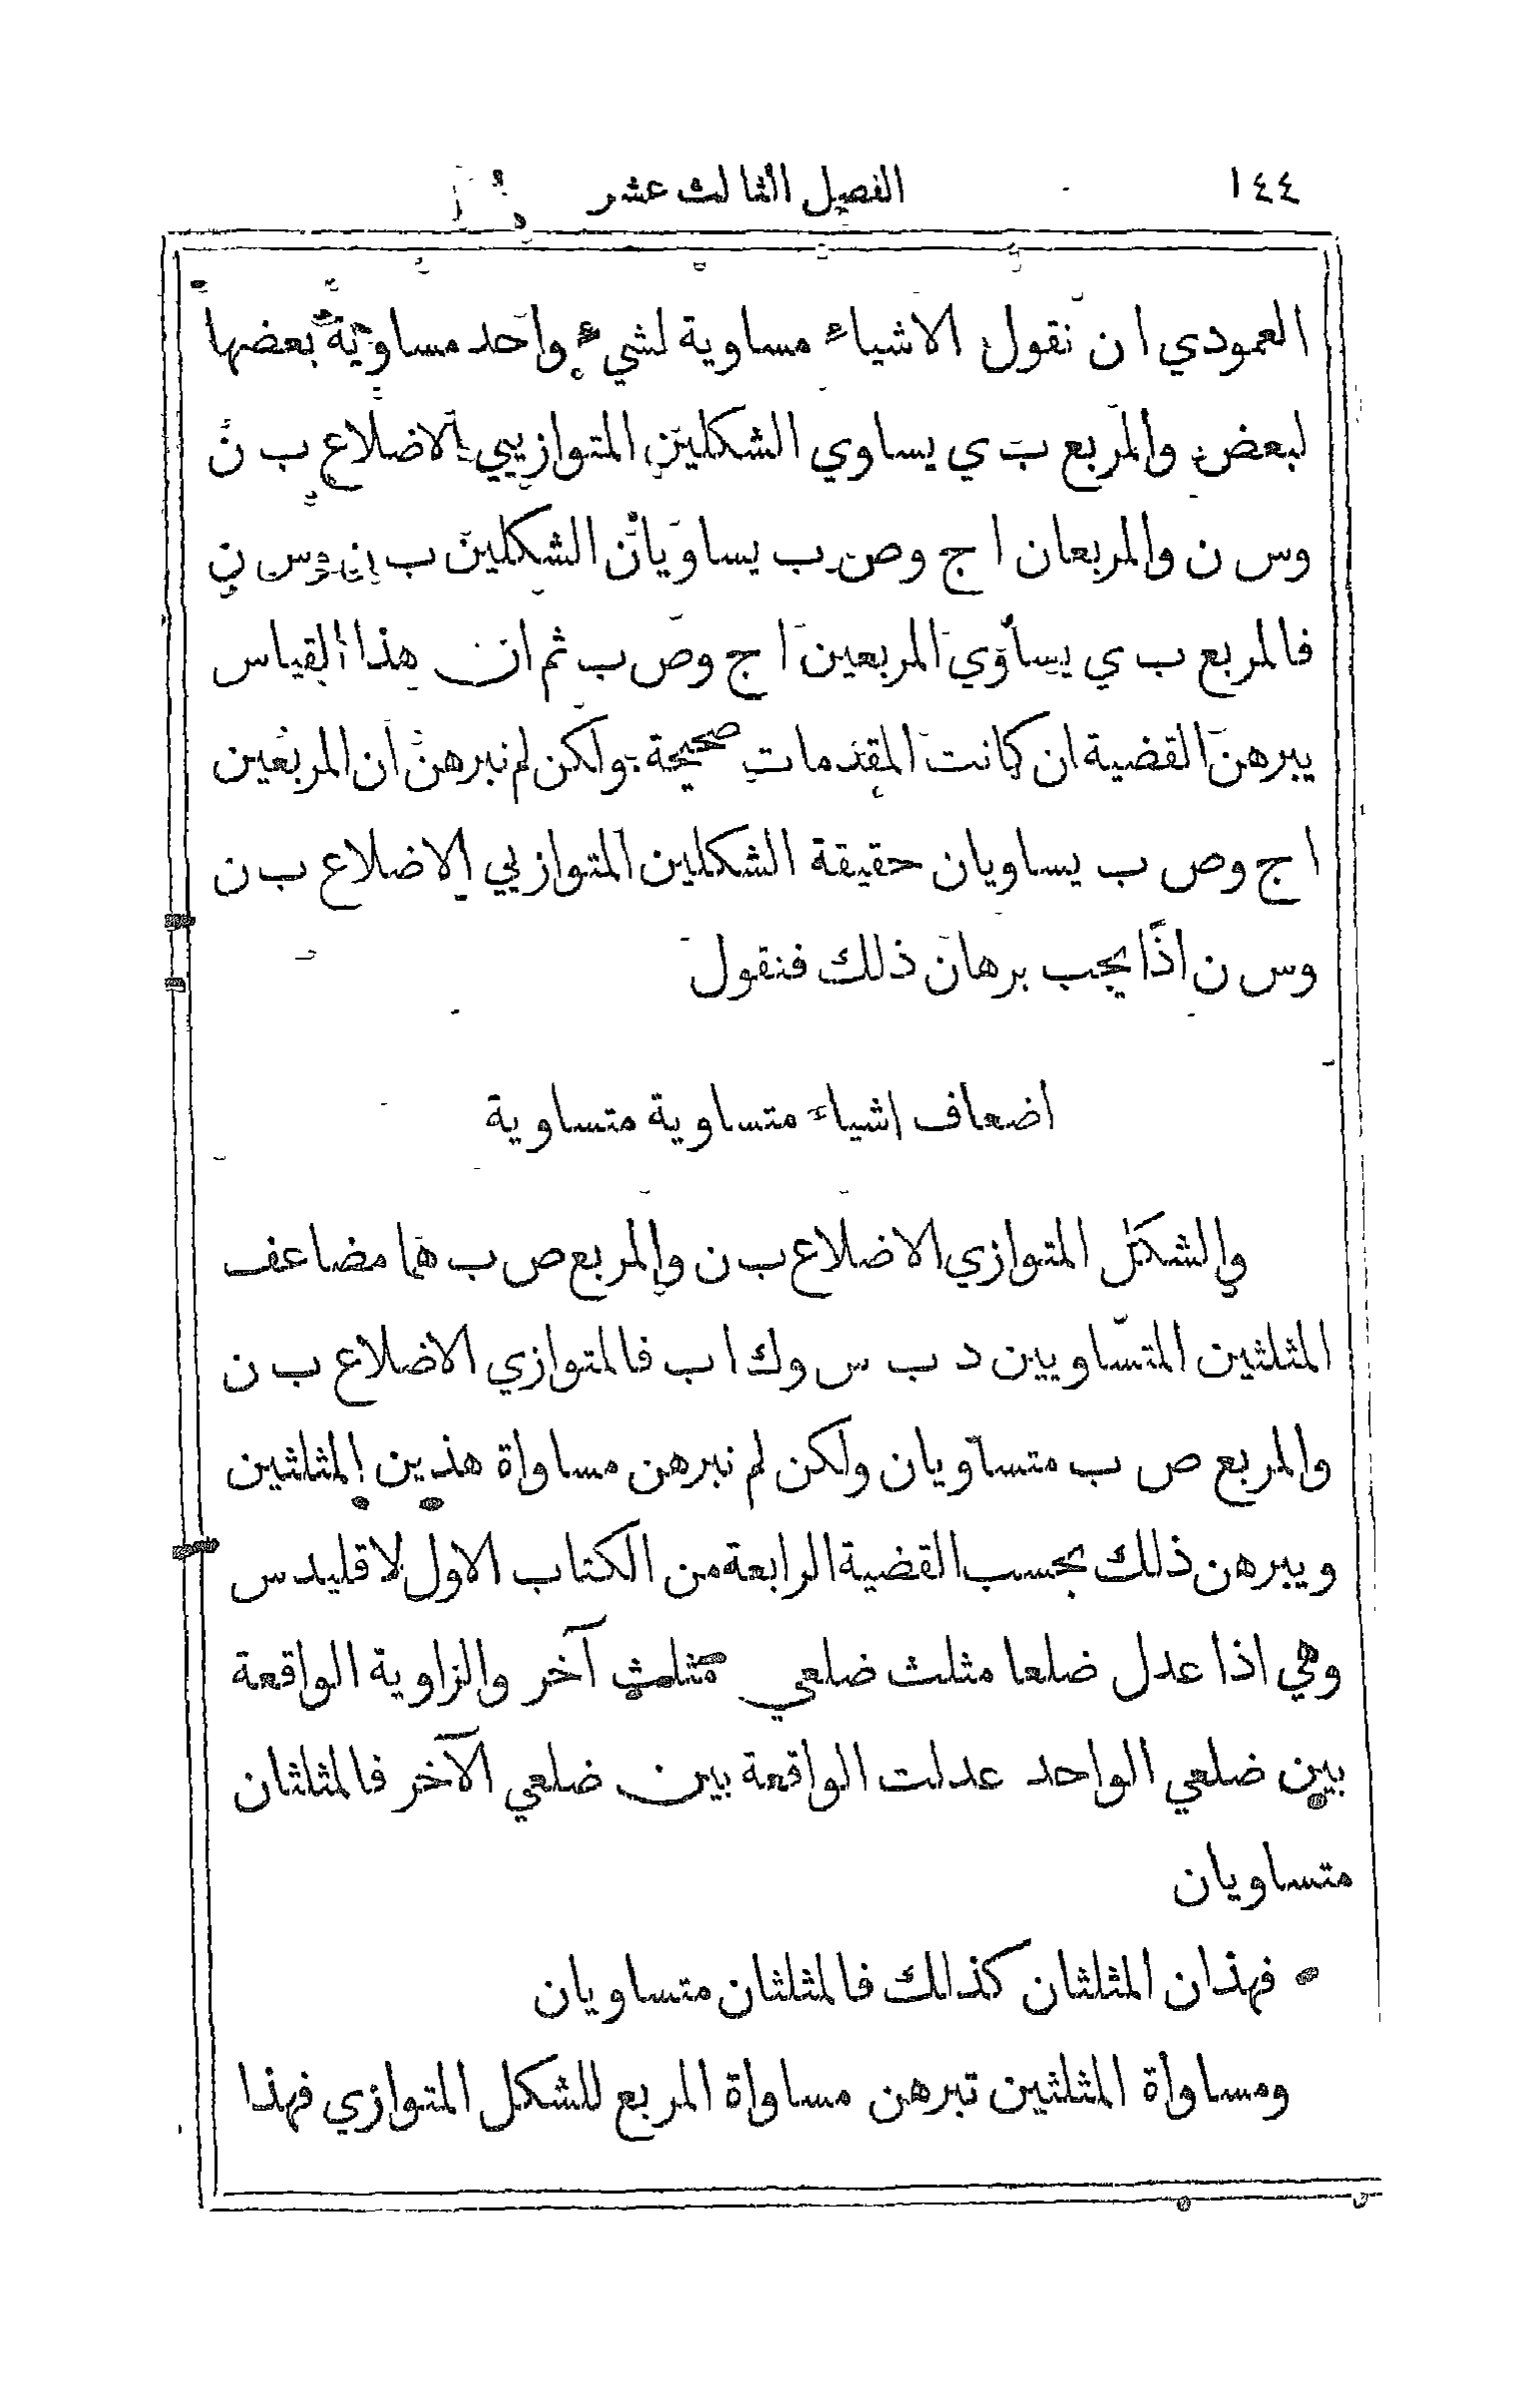 ١٤٤ الفصل الثالث عشر
العمودي ان نقول الاشياء مساوية لشيء واحد مساوية بعضها
لبعض والمربع ب ي يساوي الشكلين المتوازيي الاضلاع ب ن
وس ن والمربعان ا ج وص ب يساويان الشكلين ب ن وس ن
فالمربع ب ي يساوي المربعين ا ج وص ب ثم ان هذا القياس
يبرهن القضية ان كانت المقدمات صحيحة ولكن لم نبرهن ان المربعين
ا ج وص ب يساويان حقيقة الشكلين المتوازيي الاضلاع ب ن
وس ن اذًا يجب برهان ذلك فنقول
اضعاف اشياء متساوية متساوية
والشكل المتوازي الاضلاع ب ن والمربع ص ب هما مضاعف
المثلثين المتساويين د ب س وك ا ب فالمتوازي الاضلاع ب ن
والمربع ص ب متساويان ولكن لم نبرهن مساواة هذين المثلثين
ويبرهن ذلك بحسب القضية الرابعة من الكتاب الاول لاقليدس
وهي اذا عدل ضلعا مثلث ضلعي مثلث آخر والزاوية الواقعة
بين ضلعي الواحد عدلت الواقعة بين ضلعي الآخر فالمثلثان
متساويان
فهذان المثلثان كذلك فالمثلثان متساويان
ومساواة المثلثين تبرهن مساواة المربع للشكل المتوازي فهذا